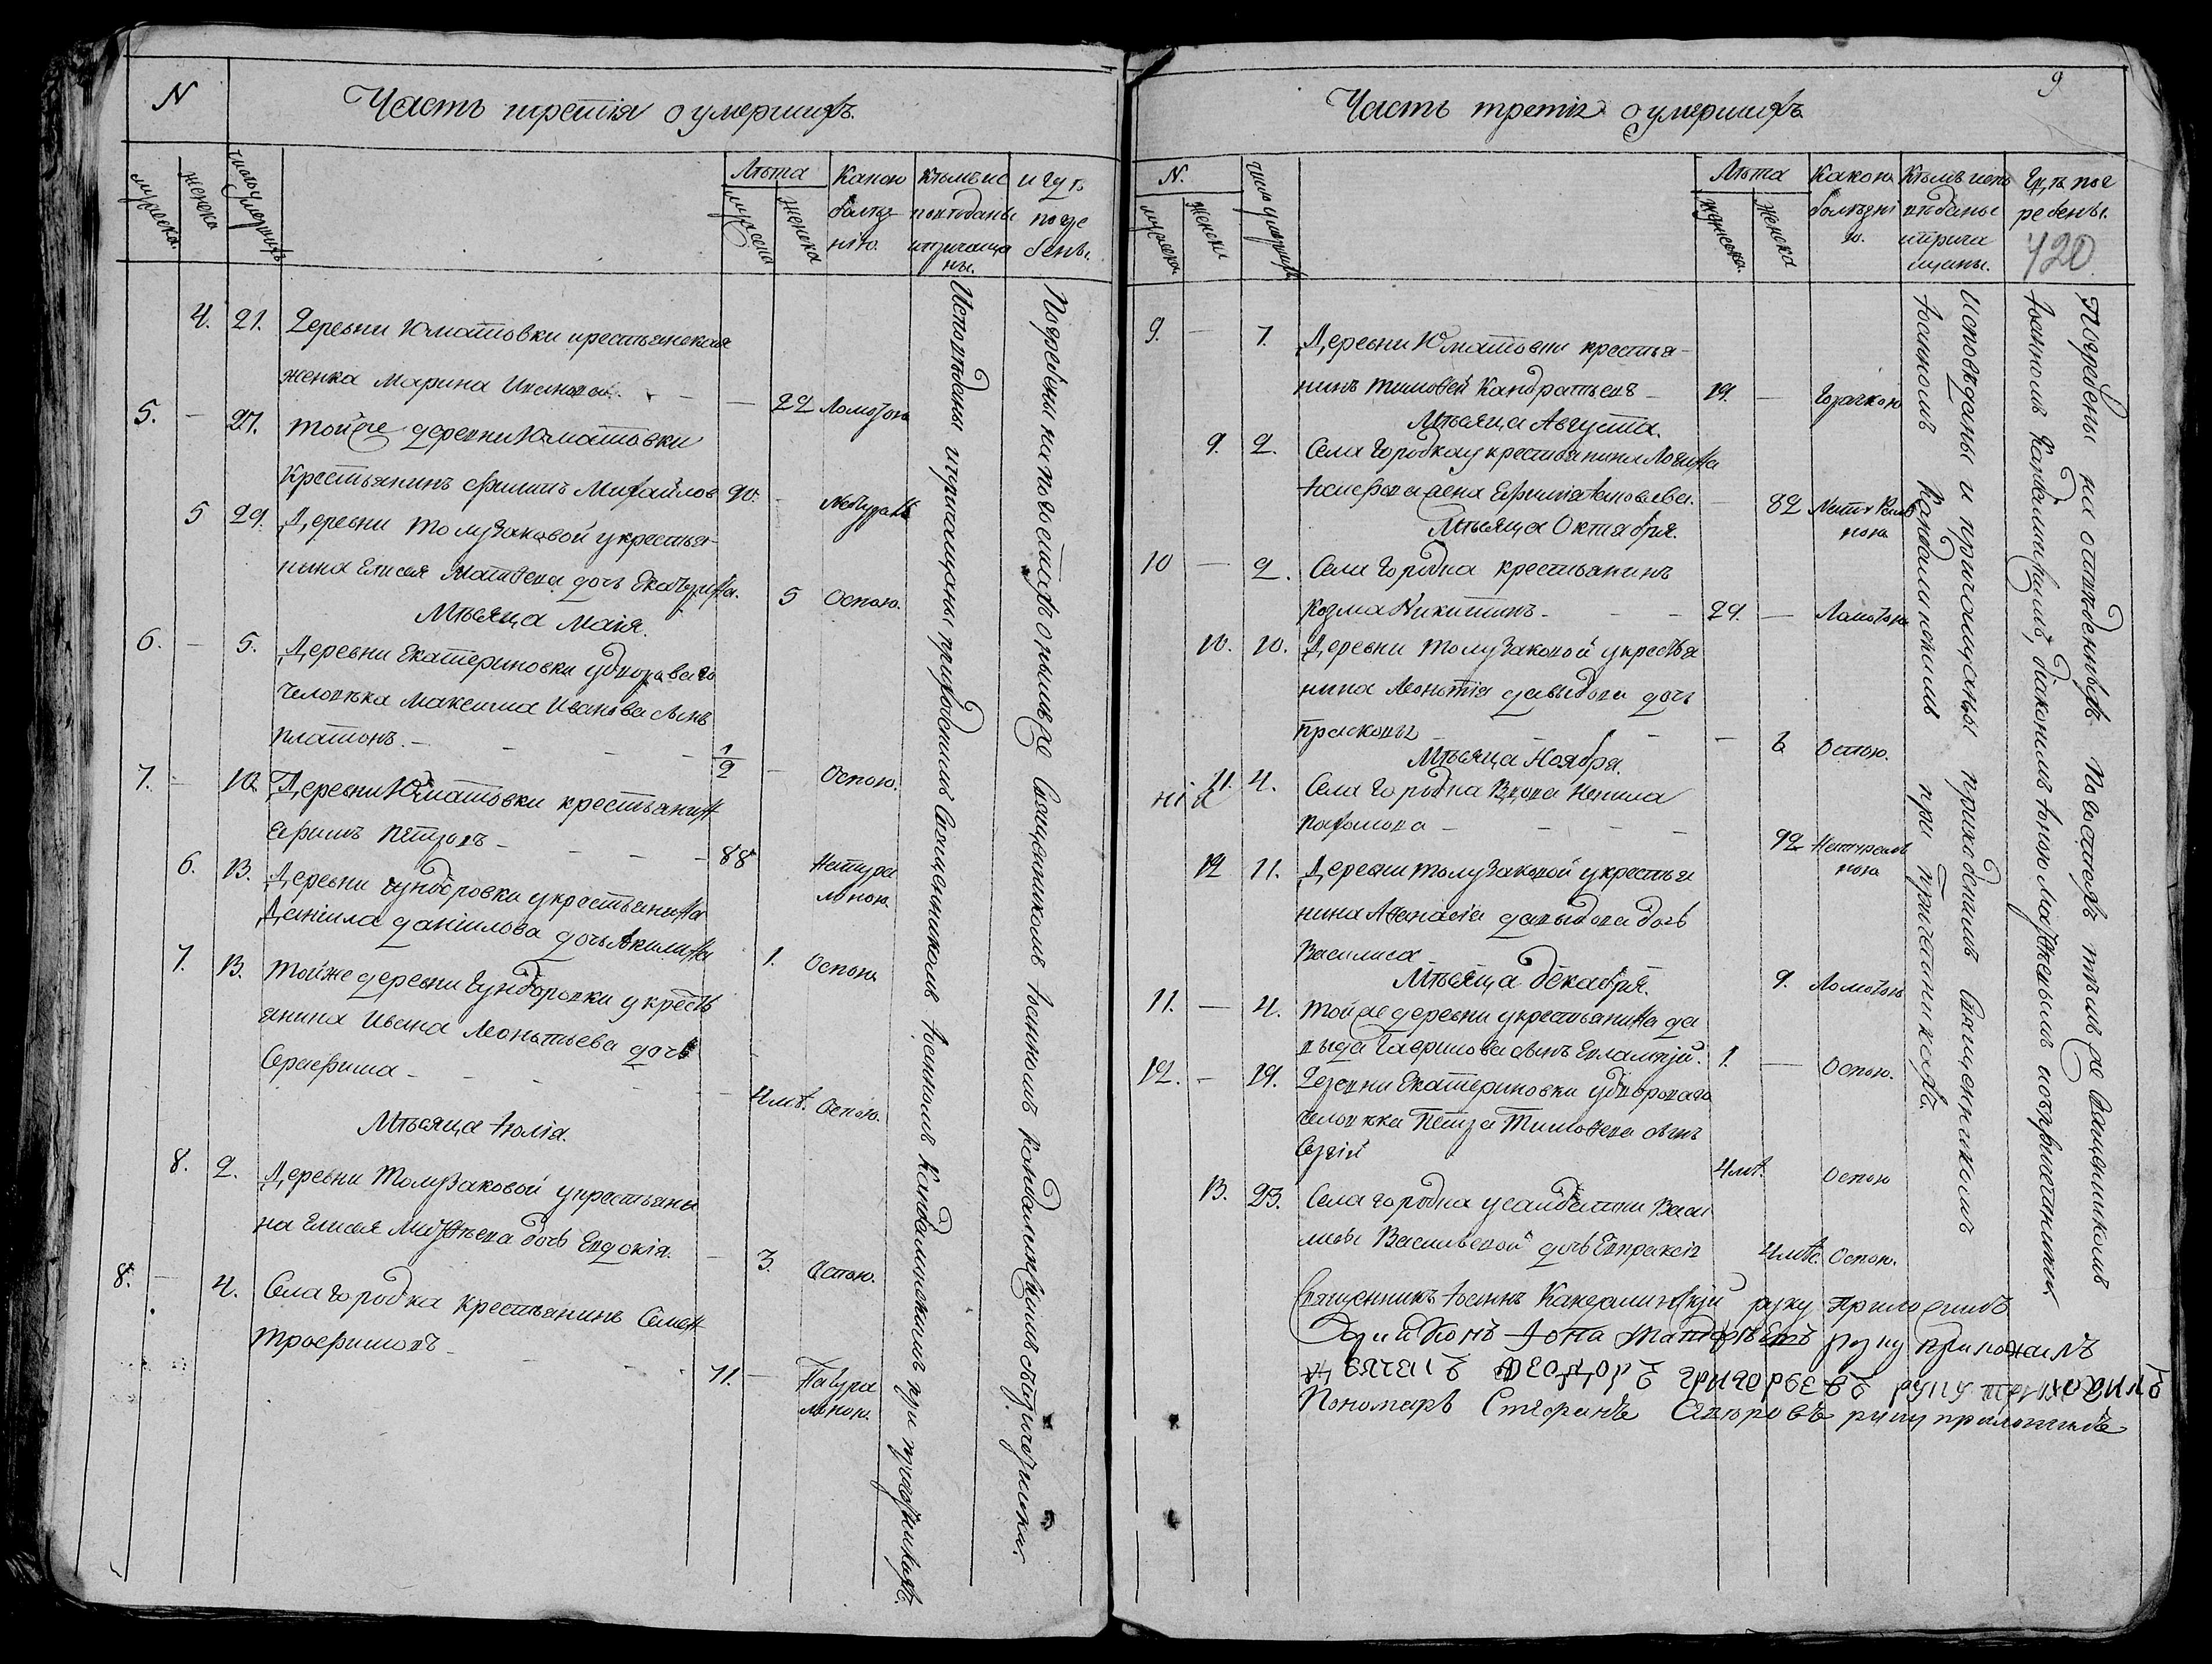 N
Часть третія о умершихъ.
мужеска
женска
число умершихъ
Лѣта
мужеска
женска
Какою болѣзнію.
Кѣмъ исповѣданы и прічащены.
и гдѣ погребены.
4. 21. Деревни Юматовки крестьянская
женка Марина Иванова. 22 Ломотою
5. 27. Тойже деревни Юматовки
крестьянинъ Филипъ Михайловъ 90.
5 29. Деревни Толузаковой у крестья-
нина Елисея Матвеева дочь Екатерина. 5 Оспою.
Мѣсяца Маія.
6. 5. Деревни Екатериновки у дворова го
человѣка Максима Иванова сынъ
Платонъ. 1/2 Оспою.
7. 10. Деревни Юматовки крестьянинъ
Ефимъ Петровъ 88 Натура
лною
6. 13. Деревни Чундоровки у крестьянина
Даніила Даніилова дочь Акилина 1. Оспою
7. 13. Тойже деревни Чундоровки у кресть
янина Ивана Леонтьева дочь
Серафима 4 мѣ. Оспою.
Мѣсяца Іюлія.
8. 2. Деревни Толузаковой у крестьяни
на Елисея Матвѣева дочь Евдокія. 3. Оспою.
8. 4. Села Городка крестьянинъ Семенъ
Трофимовъ 71. Натура
лною.
Исповѣданы и причащены приходскимъ Священникомъ Іоанномъ Кандалинскимъ при причетникахъ.
Погребены на погостахъ Священникомъ Іоанномъ Кандалинскимъ съ причетники.
9
Часть третія о умершихъ
N.
мужеска
женска
число умершихъ
Лѣта
мужеска
женска
Какою болѣзнію.
Кѣмъ исповѣданы и прича щены.
Гдѣ пог ребены.
420
9. 7. Деревни Юматовки крестья-
нинъ Тимофей Кандратьевъ 19. Горячкою
Мѣсяца Августа.
9. 2. Села Городка у крестьянина Логина
жена Ефимія Яковлева. 82 Натурал
ною
Мѣсяца Октября.
10 2. Села Городка крестьянинъ
Козма Никитинъ 29. Ломотою
10. 10. Деревни Толузаковой у крестья
нина Леонтія Давыдова дочь
Прасковья 6 Оспою.
Мѣсяца Ноября.
11. 4. Села Городка Вдова Ненила
Пахомова 92 Натурал
ною
12 11. Деревни Толузаковой у крестья
нина Афанасія Давыдова дочь
Василиса 9. Ломотою
Мѣсяца Декабря.
11. 4. Тойже деревни у крестьянина Да
выда Гаврилова сынъ Евлампій. 1. Оспою.
12. 19. Деревни Екатериновки у дворова го
человѣка Петра Тимофеева сынъ
Сергій 4 мѣ. Оспою
13. 23. Села Городка у салдатки Васи
лисы Васильевой дочь Евпраксія 4 мѣс. Оспою.
Исповѣданы и причащены приходскимъ Священникомъ
Іоанномъ Кандалинскимъ при причетникахъ.
Погребены на отведенныхъ Погостахъ тѣмъ же Священникомъ
Іоанномъ Кандалинскимъ, діакономъ Іоною Матвеевымъ и съ причетники.
Священникъ Іоаннъ Кандалинскій руку приложилъ
Діаконъ Іона Матвѣевъ руку приложилъ
Дьячекъ Федоръ Григорьевъ руку приложилъ
Пономарь Стефанъ руку приложилъ